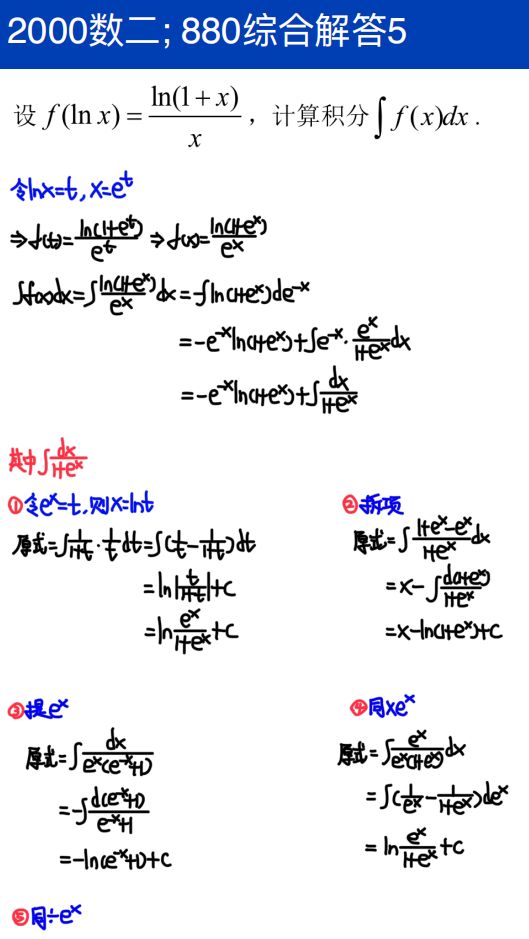 2000数二; 880综合解答5
设 f(ln x) = ln(1+x)/x ，计算积分∫ f(x)dx .
令lnx=t, x=e^t
⇒f(t)=ln(1+e^t)/e^t ⇒f(x)=ln(1+e^x)/e^x
∫f(x)dx=∫ln(1+e^x)/e^x dx=-∫ln(1+e^x)de^-x
=-e^-x ln(1+e^x)+∫e^-x·e^x/(1+e^x) dx
=-e^-x ln(1+e^x)+∫dx/(1+e^x)
其中∫dx/(1+e^x)
①令e^x=t,则x=lnt
原式=∫1/(1+t)·1/t dt=∫(1/t-1/(1+t))dt
=ln|t/(1+t)|+C
=ln e^x/(1+e^x)+C
②拆项
原式=∫(1+e^x-e^x)/(1+e^x) dx
=x-∫d(1+e^x)/(1+e^x)
=x-ln(1+e^x)+C
③提e^x
原式=∫dx/(e^x(e^-x+1))
=-∫d(e^-x+1)/(e^-x+1)
=-ln(e^-x+1)+C
④同×e^x
原式=∫e^x/(e^x(1+e^x)) dx
=∫(1/e^x-1/(1+e^x))de^x
=ln e^x/(1+e^x)+C
⑤同÷e^x